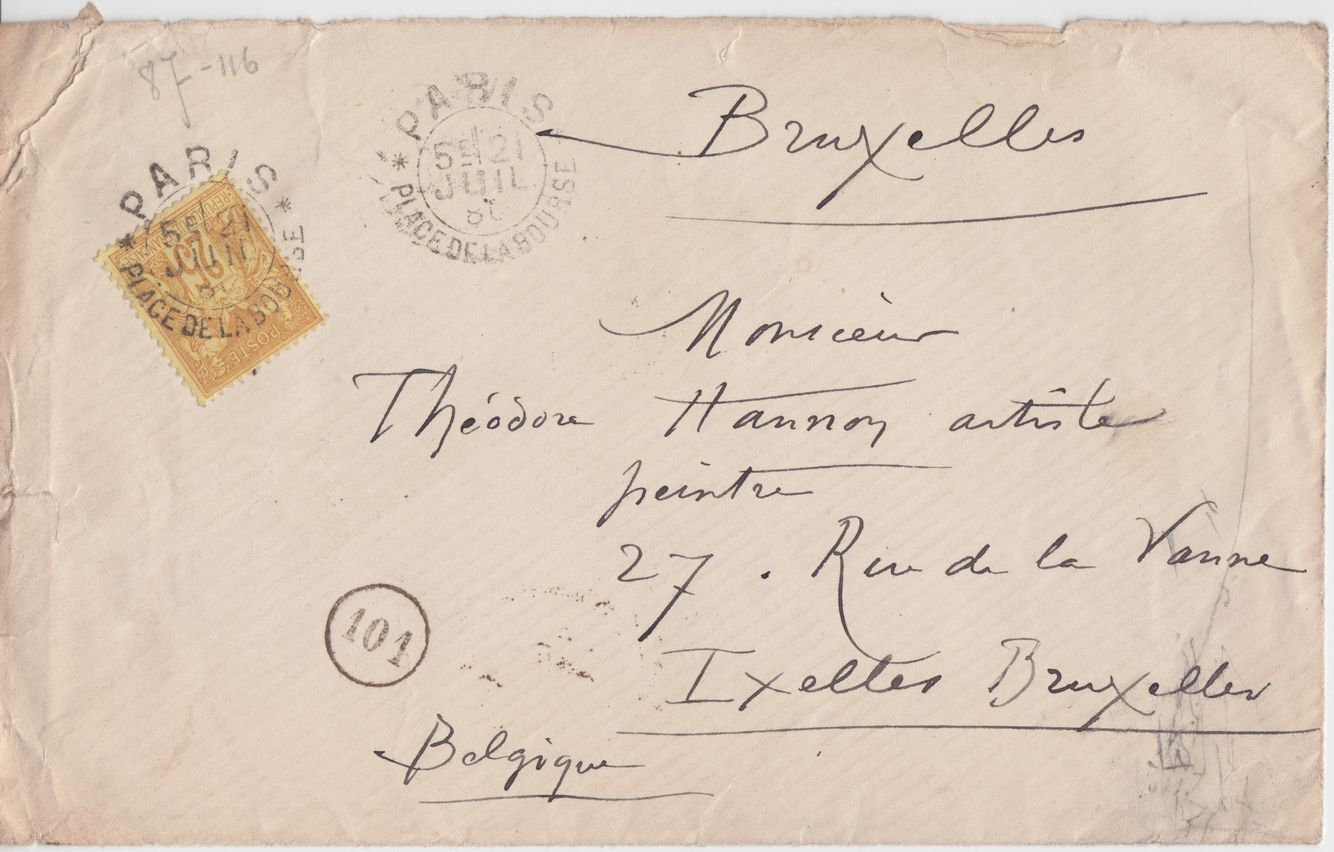 87-116
PARIS
5E 21
JUIL
81
PLACE DE LA BOURSE
Bruxelles
PARIS
5E 21
JUIL
81
PLACE DE LA BOURSE
25
POSTES
Monsieur
Théodore Hannon artiste
peintre
27. Rue de la Vanne
Ixelles Bruxelles
Belgique
101